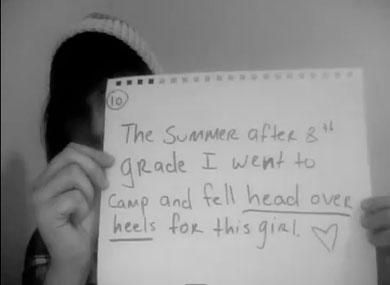 10
The Summer after 8th
grade I went to
camp and fell head over
heels for this girl. ♡